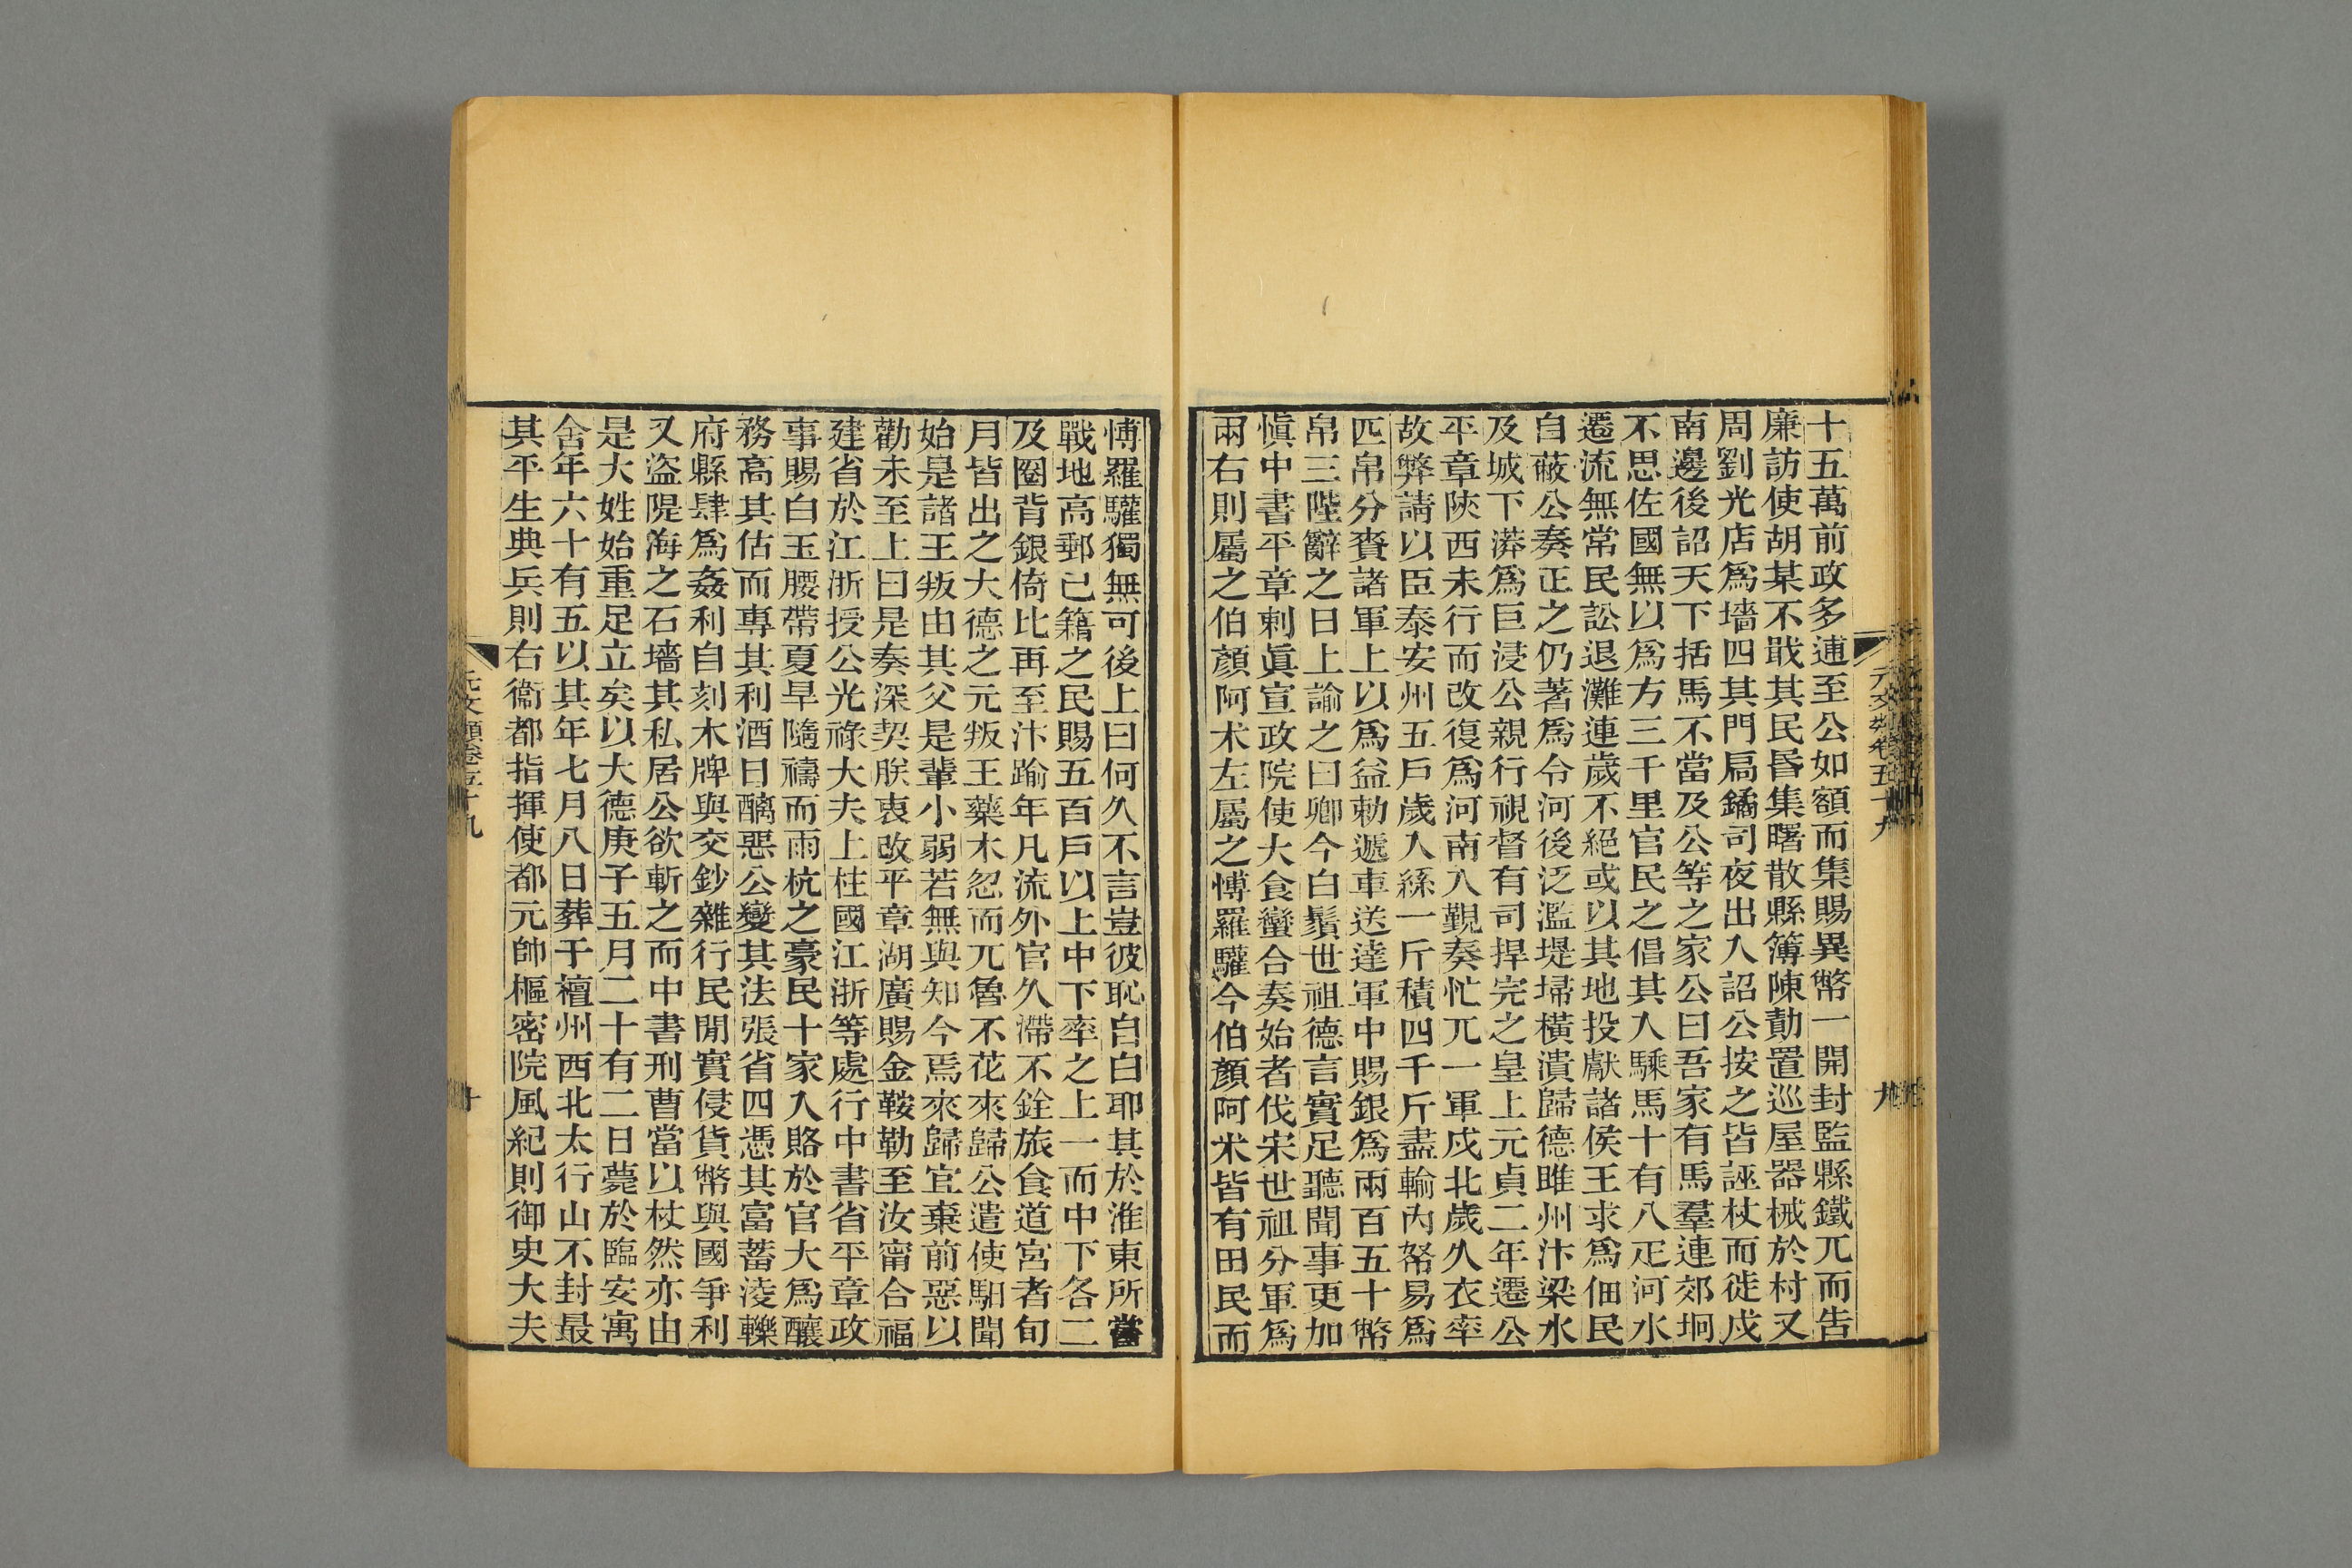 十五萬前政多逋至公如額而集賜異幣一開封監縣鐵兀而告
廉訪使胡某不戢其民昏集曙散縣簿陳勣置巡屋器械於村又
周劉光店爲墻四其門扃鐍司夜出入詔公按之皆誣杖而徙戍
南邊後詔天下括馬不當及公等之家公曰吾家有馬羣連郊坰
不思佐國無以爲方三千里官民之倡其入騬馬十有八疋河水
遷流無常民訟退灘連歲不絕或以其地投獻諸侯王求爲佃民
自蔽公奏正之仍著爲令河後泛濫堤埽橫潰歸德睢州汴梁水
及城下漭爲巨浸公親行視督有司捍完之皇上元貞二年遷公
平章陝西未行而改復爲河南入覲奏忙兀一軍戍北歲久衣率
故弊請以臣泰安州五戶歲入絲一斤積四千斤盡輸內帑易爲
匹帛分賚諸軍上以爲益勅遞車送達軍中賜銀爲兩百五十幣
帛三陛辭之日上諭之曰卿今白鬚世祖德言實足聽聞事更加
愼中書平章剌眞宣政院使大食蠻合奏始者伐宋世祖分軍爲
兩右則屬之伯顏阿朮左屬之愽羅驩今伯顏阿米皆有田民而
元文類卷五十九
九
愽羅驩獨無可後上曰何久不言豈彼恥自白耶其於淮東所當
戰地高郵已籍之民賜五百戶以上中下率之上一而中下各二
及圈背銀倚比再至汴踰年凡流外官久滯不銓旅食道宮者旬
月皆出之大德之元叛王藥木忽而兀魯不花來歸公遣使馹聞
始是諸王叛由其父是輩小弱若無與知今焉來歸宜棄前惡以
勸未至上曰是奏深契朕衷改平章湖廣賜金鞍勒至汝甯合福
建省於江浙授公光祿大夫上柱國江浙等處行中書省平章政
事賜白玉腰帶夏旱隨禱而雨杭之豪民十家入賂於官大爲釀
務高其估而專其利酒日醨惡公變其法張省四憑其富蓄淩轢
府縣肆爲姦利自刻木牌與交鈔雜行民閒實侵貨幣與國爭利
又盜隄海之石墻其私居公欲斬之而中書刑曹當以杖然亦由
是大姓始重足立矣以大德庚子五月二十有二日薨於臨安寓
舍年六十有五以其年七月八日葬于檀州西北太行山不封最
其平生典兵則右衞都指揮使都元帥樞密院風紀則御史大夫
元文類卷五十九
十